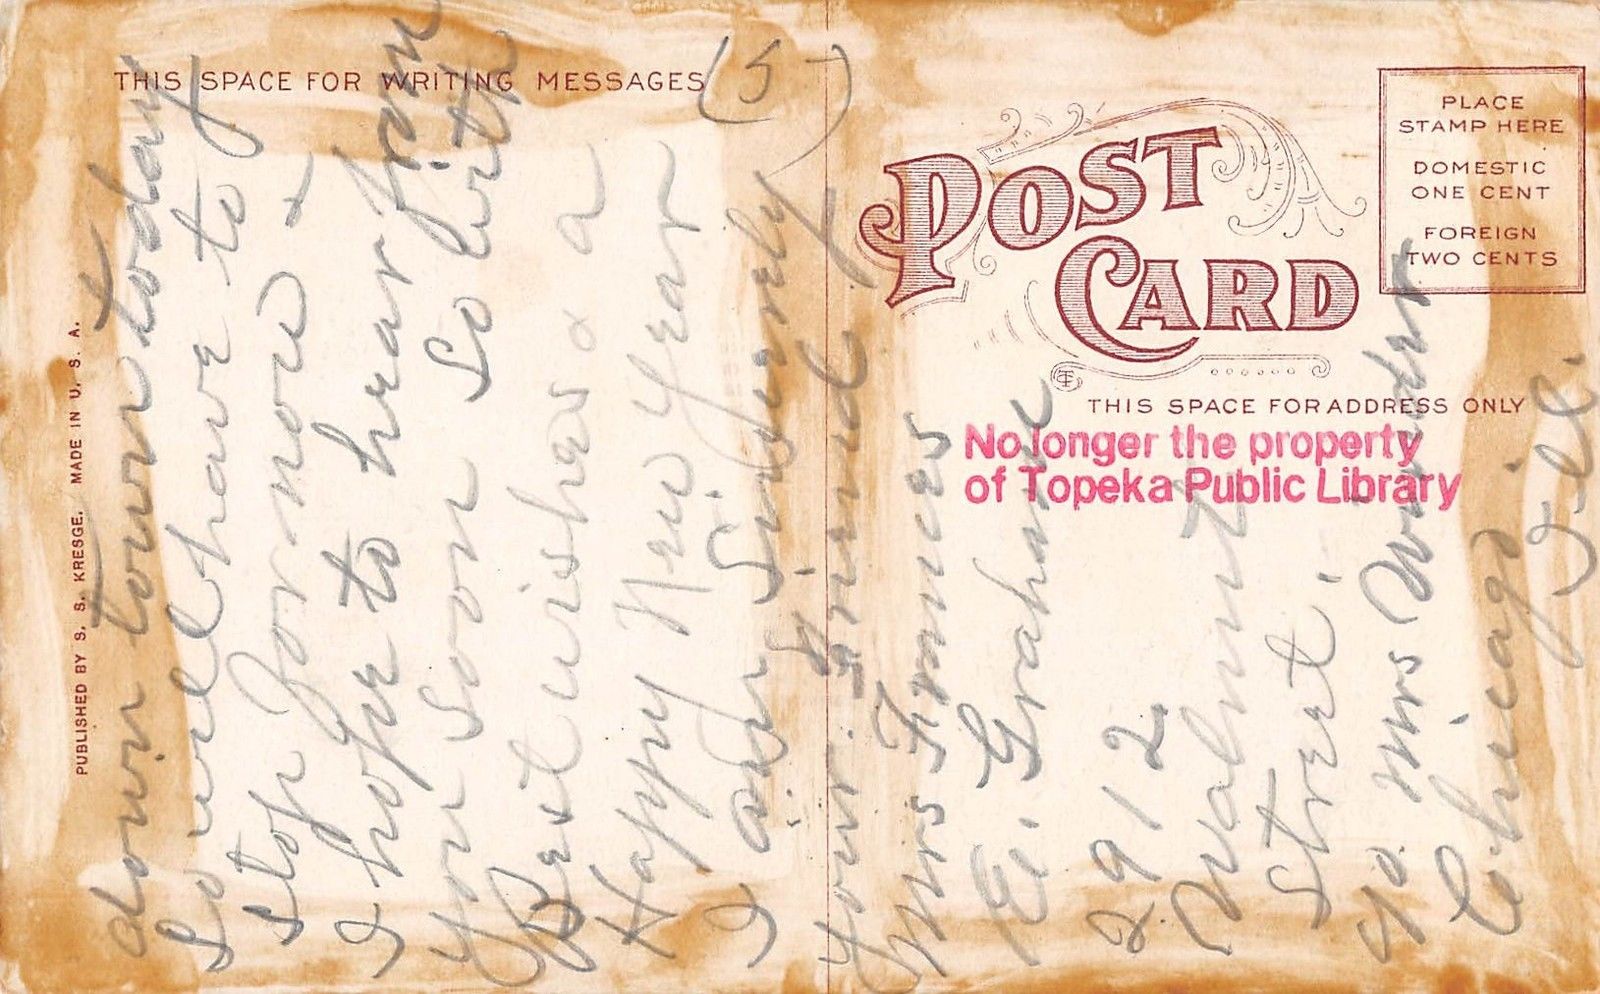 THIS SPACE FOR WRITING MESSAGES
(5)
down town today
So will have to
stop for now &
I hope to hear from
you soon So with
Best wishes & a
Happy New Year
I am Sincerely
Your Friend
Mrs Frances
E. Graham
2912
Walnut
Street.
℅ Mrs
Chicago
Ill.
POST
CARD
THIS SPACE FOR ADDRESS ONLY
PLACE
STAMP HERE
DOMESTIC
ONE CENT
FOREIGN
TWO CENTS
No longer the property
of Topeka Public Library
PUBLISHED BY S. S. KRESGE. MADE IN U. S. A.